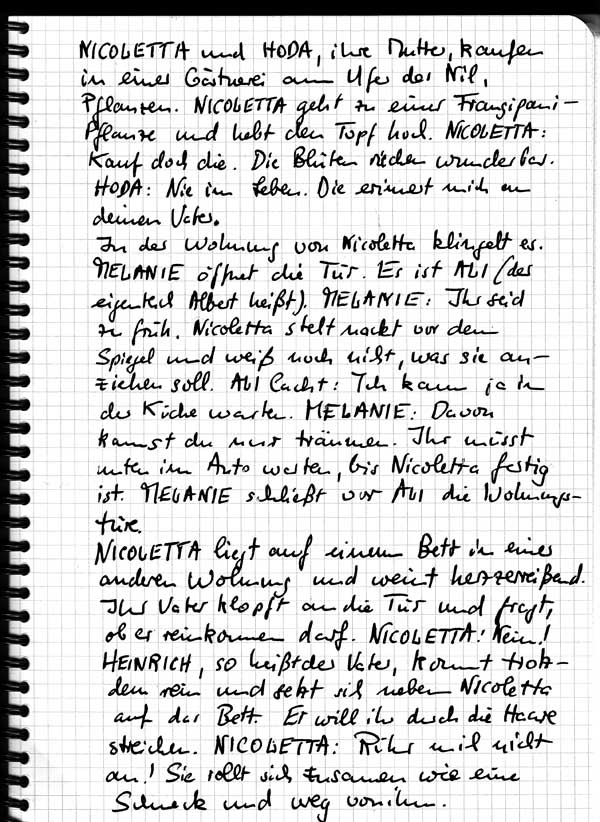 NICOLETTA und HODA, ihre Mutter, kaufen
in einer Gärtnerei am Ufer des Nil,
Pflanzen. NICOLETTA geht zu einer Frangipani-
Pflanze und hebt den Topf hoch. NICOLETTA:
Kauf doch die. Die Blüten riechen wunderbar.
HODA: Nie im Leben. Die erinnert mich an
deinen Vater.
In der Wohnung von Nicoletta klingelt es.
MELANIE öffnet die Tür. Es ist ALI (der
eigentlich Albert heißt). MELANIE: Ihr seid
zu früh. Nicoletta steht nackt vor dem
Spiegel und weiß noch nicht, was sie an-
ziehen soll. ALI lacht: Ich kann ja in
der Küche warten. MELANIE: Davon
kannst du nur träumen. Ihr müsst
unten im Auto warten, bis Nicoletta fertig
ist. MELANIE schließt vor ALI die Wohnungs-
türe.
NICOLETTA liegt auf einem Bett in einer
anderen Wohnung und weint herzzerreißend.
Ihr Vater klopft an die Tür und fragt,
ob er reinkommen darf. NICOLETTA: Nein!
HEINRICH, so heißt der Vater, kommt trotz-
dem rein und setzt sich neben NICOLETTA
auf das Bett. Er will ihr durch die Haare
streichen. NICOLETTA: Rühr mich nicht
an! Sie rollt sich zusammen wie eine
Schneck und weg von ihm.